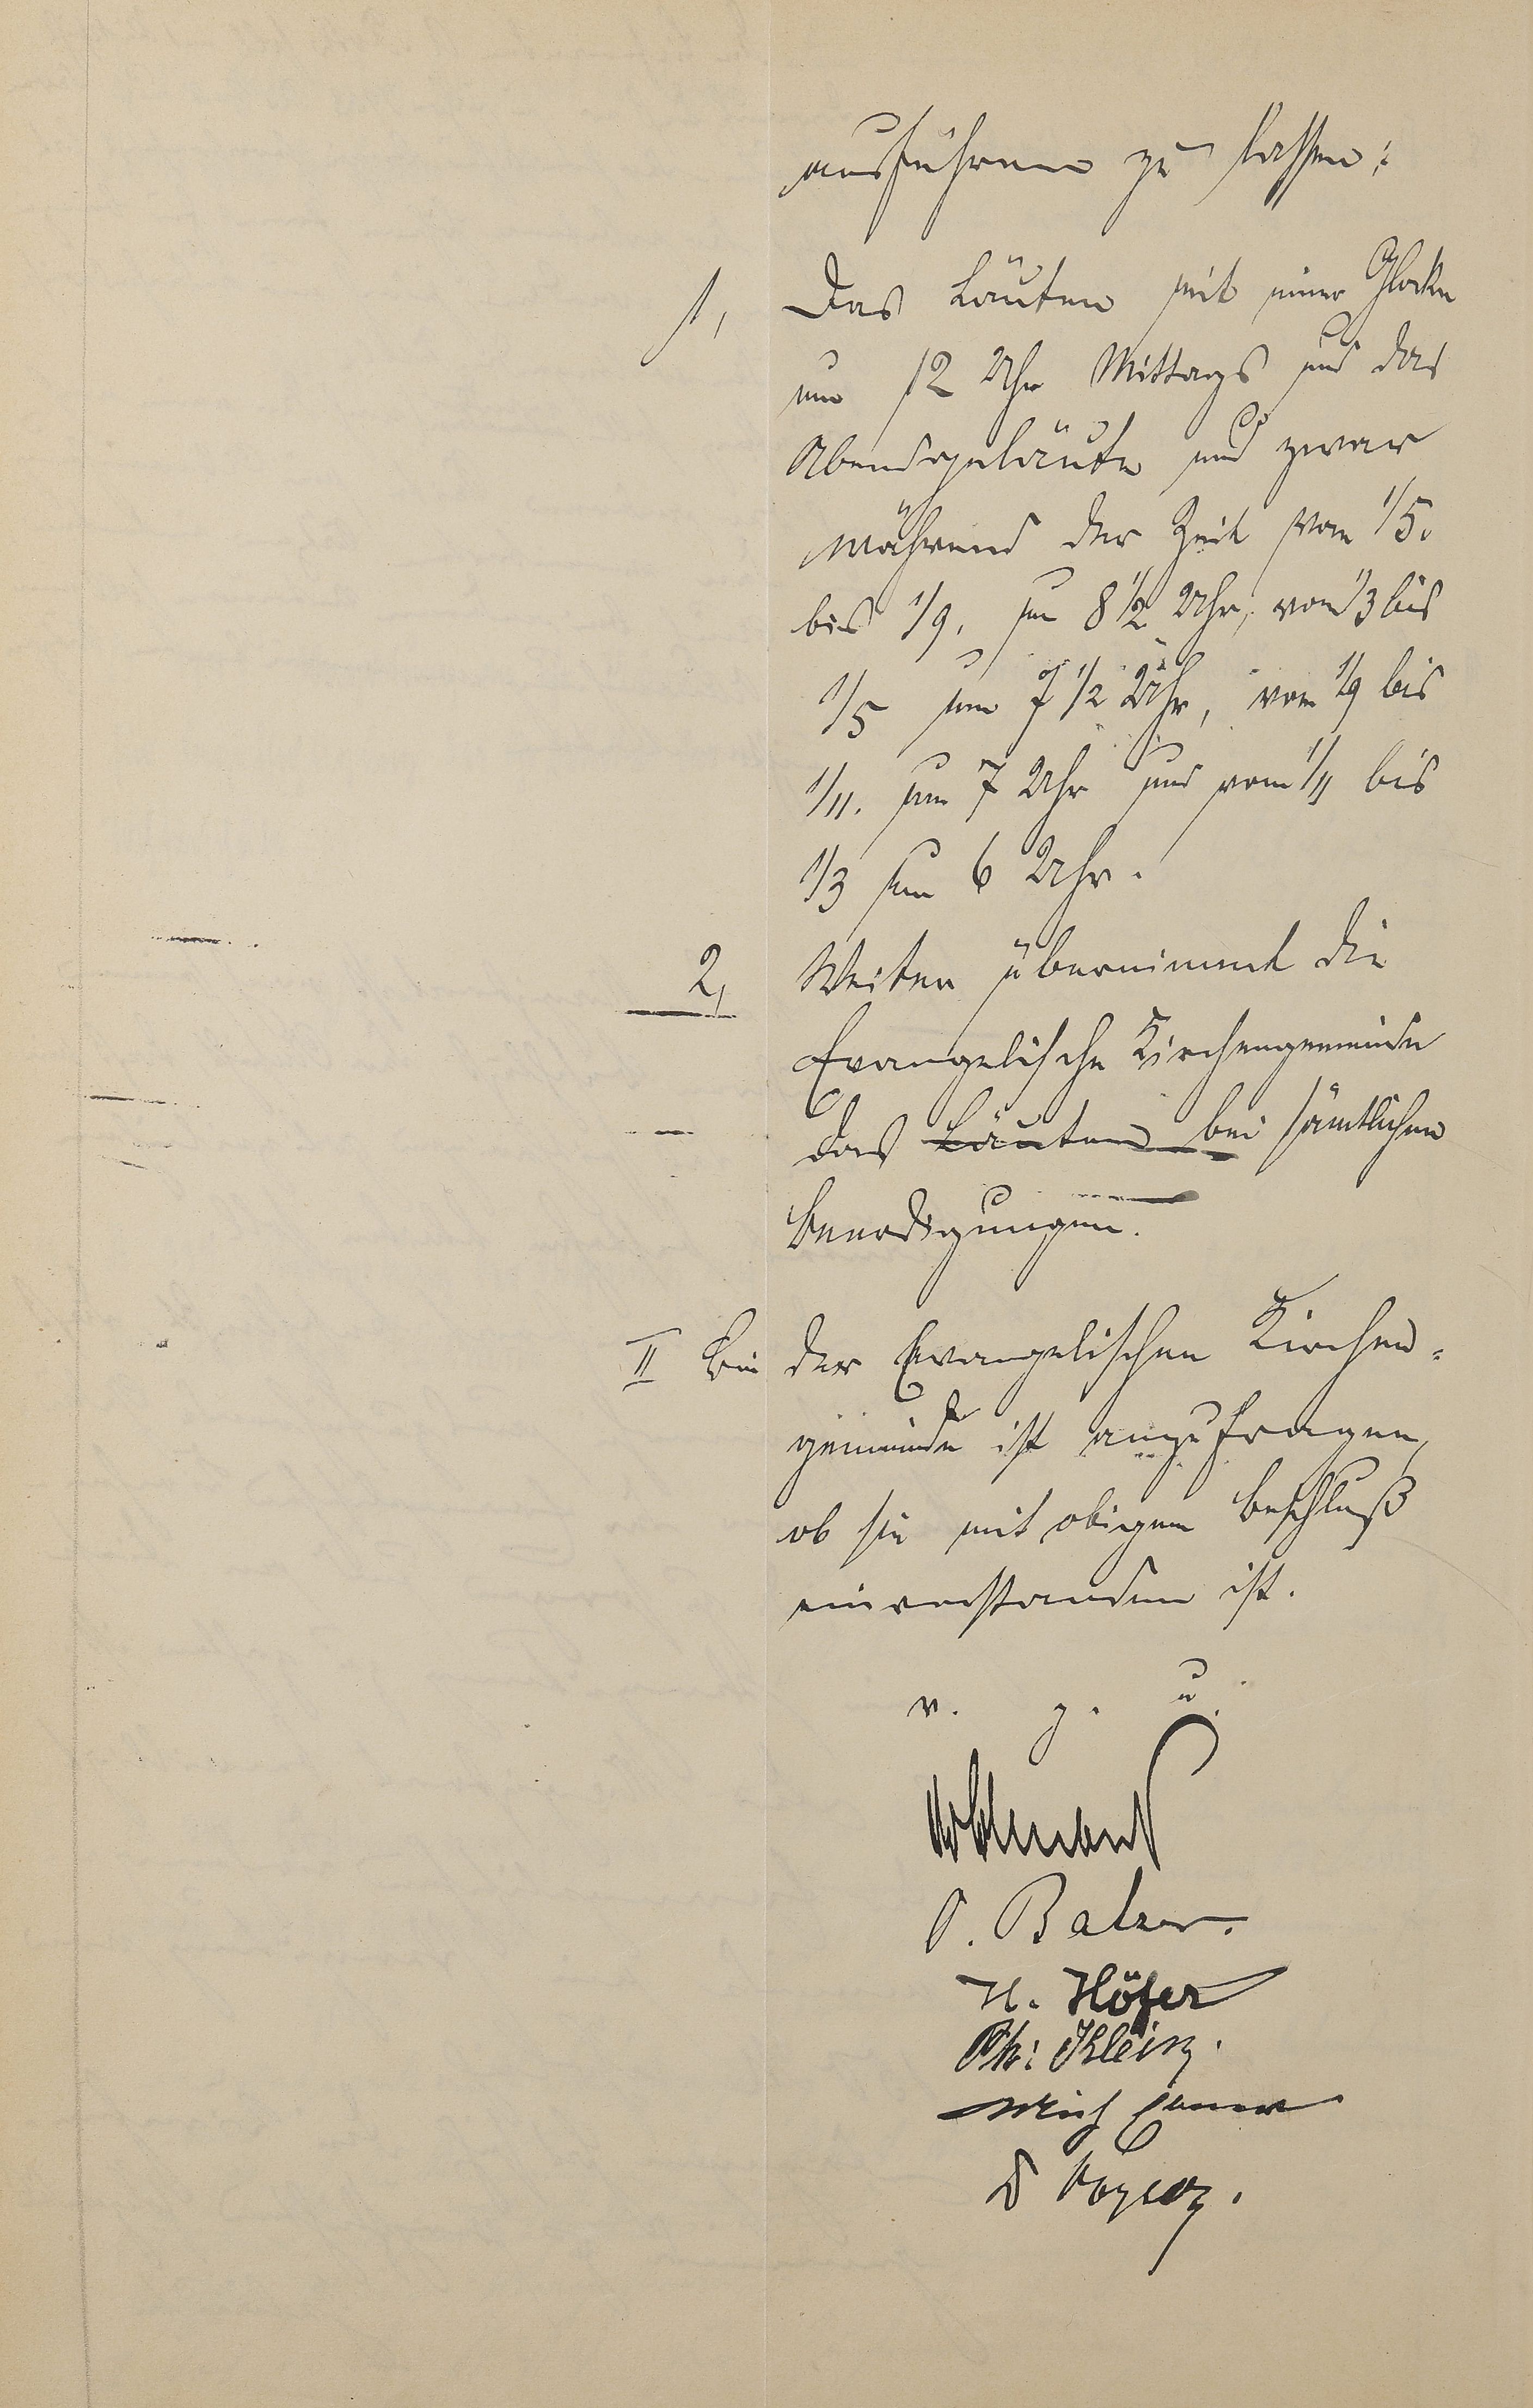 ausführen zu lassen:
1, Das Läuten mit einer Glocke
um 12 Uhr Mittags und das
Abendgeläute und zwar
während der Zeit vom 1/5.
bis 1/9. um 8 1/2 Uhr, vom 1/3 bis
1/5 um 7 1/2 Uhr, vom 1/9 bis
1/11. um 7 Uhr und vom 1/11 bis
1/3 um 6 Uhr.
2, Weiter übernimmt die
Evangelische Kirchengemeinde
das Läuten bei sämtlichen
Beerdigungen.
II Bei der Evangelischen Kirchen-
gemeinde ist anzufragen,
ob sie mit obigem Beschluß
einverstanden ist.
v. g. u.
O. Balzer.
H. Höfer
Ph: Klein.